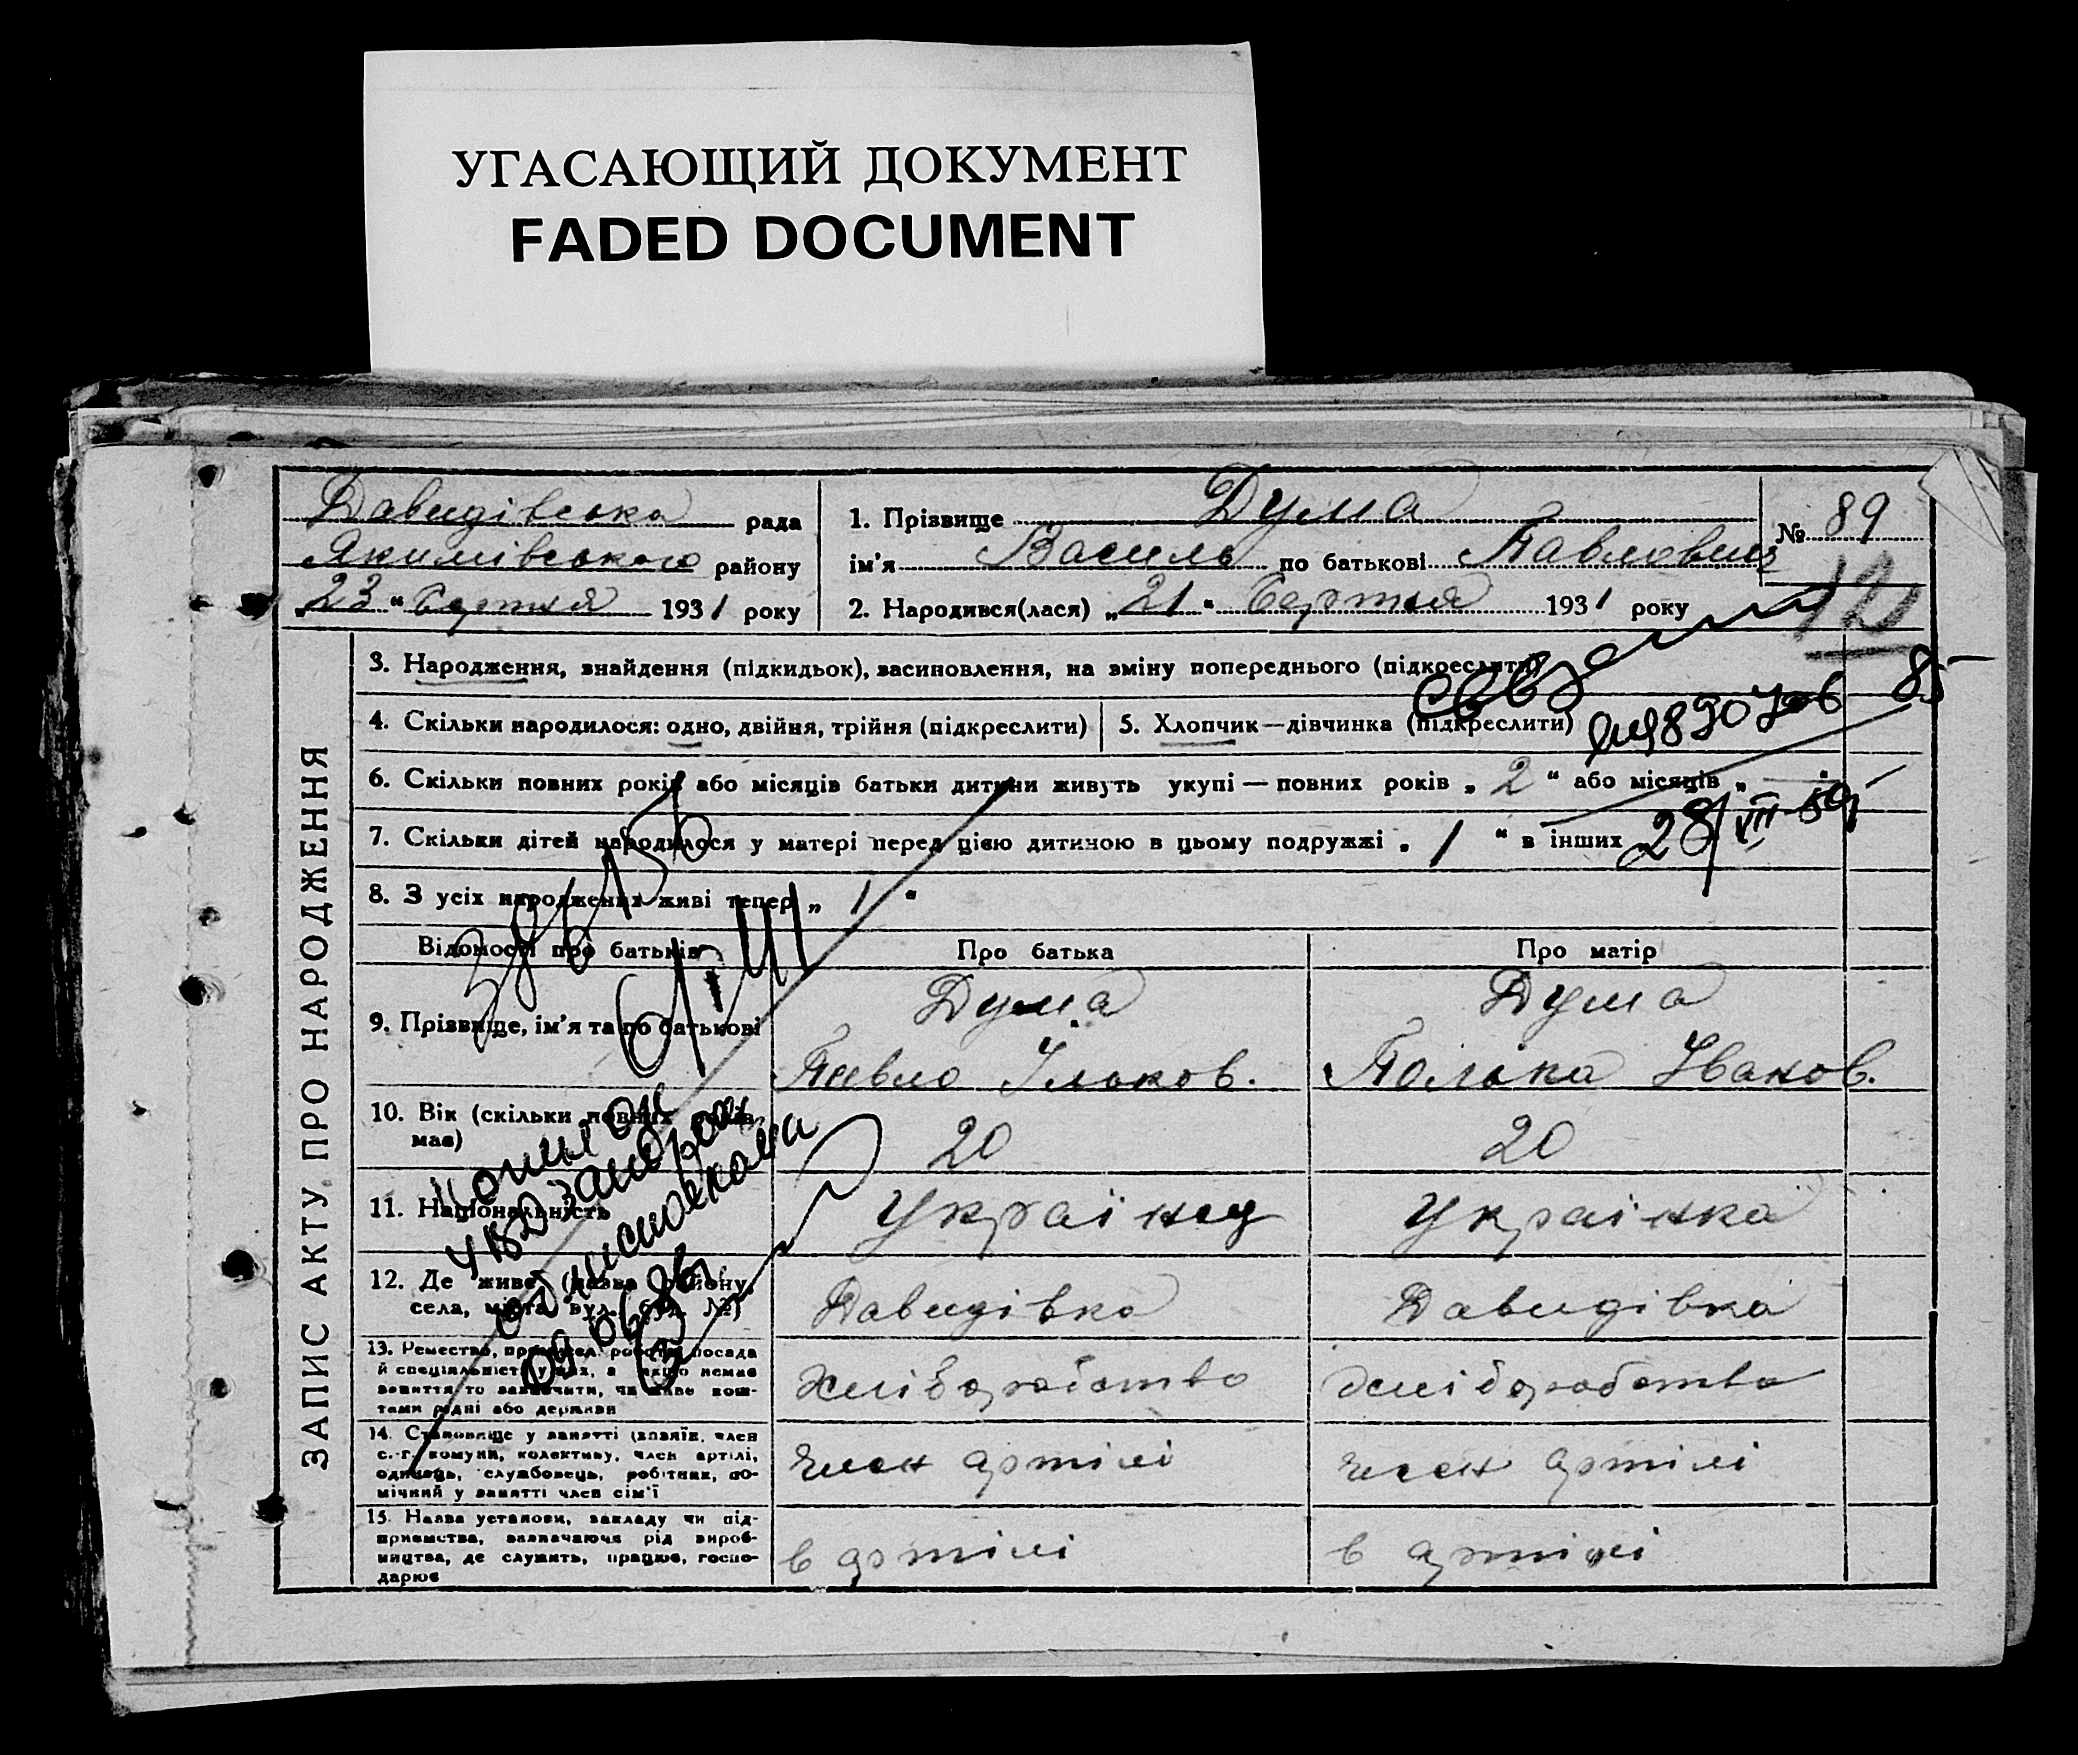 УГАСАЮЩИЙ ДОКУМЕНТ
FADED DOCUMENT
Давидівська рада
Якимівського району
„23“ Серпня 1931 року
1. Прізвище Дума
ім'я Василь по батькові Павлович
2. Народився(лася) „21“ Серпня 1931 року
№ 89
12
ЗАПИС АКТУ ПРО НАРОДЖЕННЯ
3. Народження, знайдення (підкидьок), засиновлення, на зміну попереднього (підкреслити)
4. Скільки народилося: одно, двійня, трійня (підкреслити)
5. Хлопчик—дівчинка (підкреслити)
85
6. Скільки повних років або місяців батьки дитини живуть укупі — повних років „2“ або місяців „—“
7. Скільки дітей народилося у матері перед цією дитиною в цьому подружжі „1“ в інших
28/VII-59
8. З усіх народжених живі тепер „1“
Відомості про батьків
Про батька
Про матір
9. Прізвище, ім'я та по батькові
Дума
Павло Ільков.
Дума
Полька Іванов.
10. Вік (скільки повних років має)
20
20
11. Національність
Українц
Українка
12. Де живе (назва району, села, міста, вул., буд. №)
Давидівка
Давидівка
13. Ремество, промисел, робота, посада
й спеціяльність у них, а якщо немає
заняття то зазначити, чи живе кош-
тами рідні або держави
Хліборобство
Хліборобство
14. Становище у занятті (хозяїн, член
с.-г. комуни, колективу, член артілі,
одинець, службовець, робітник, по-
мічний у занятті член сім'ї
член артілі
член артілі
15. Назва установи, закладу чи під-
приємства, зазначаючи рід вироб-
ництва, де служить, працює, госпо-
дарює
в артілі
в артілі